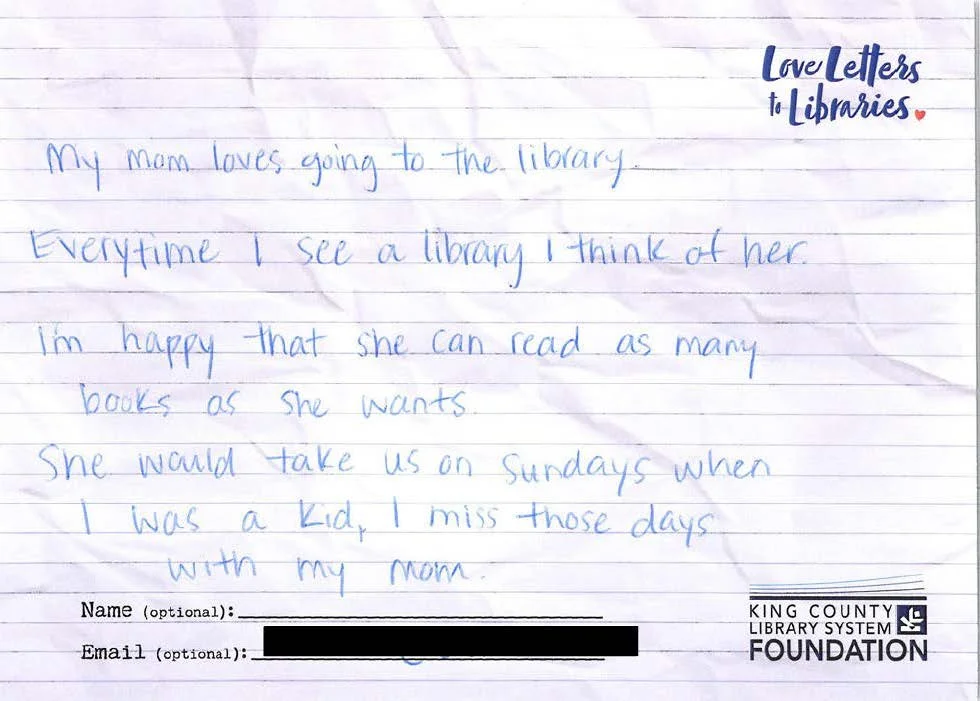 Love Letters
to Libraries
My mom loves going to the library.
Everytime I see a library I think of her.
I'm happy that she can read as many
books as she wants.
She would take us on Sundays when
I was a kid, I miss those days
with my mom.
Name (optional):
Email (optional):
KING COUNTY
LIBRARY SYSTEM
FOUNDATION